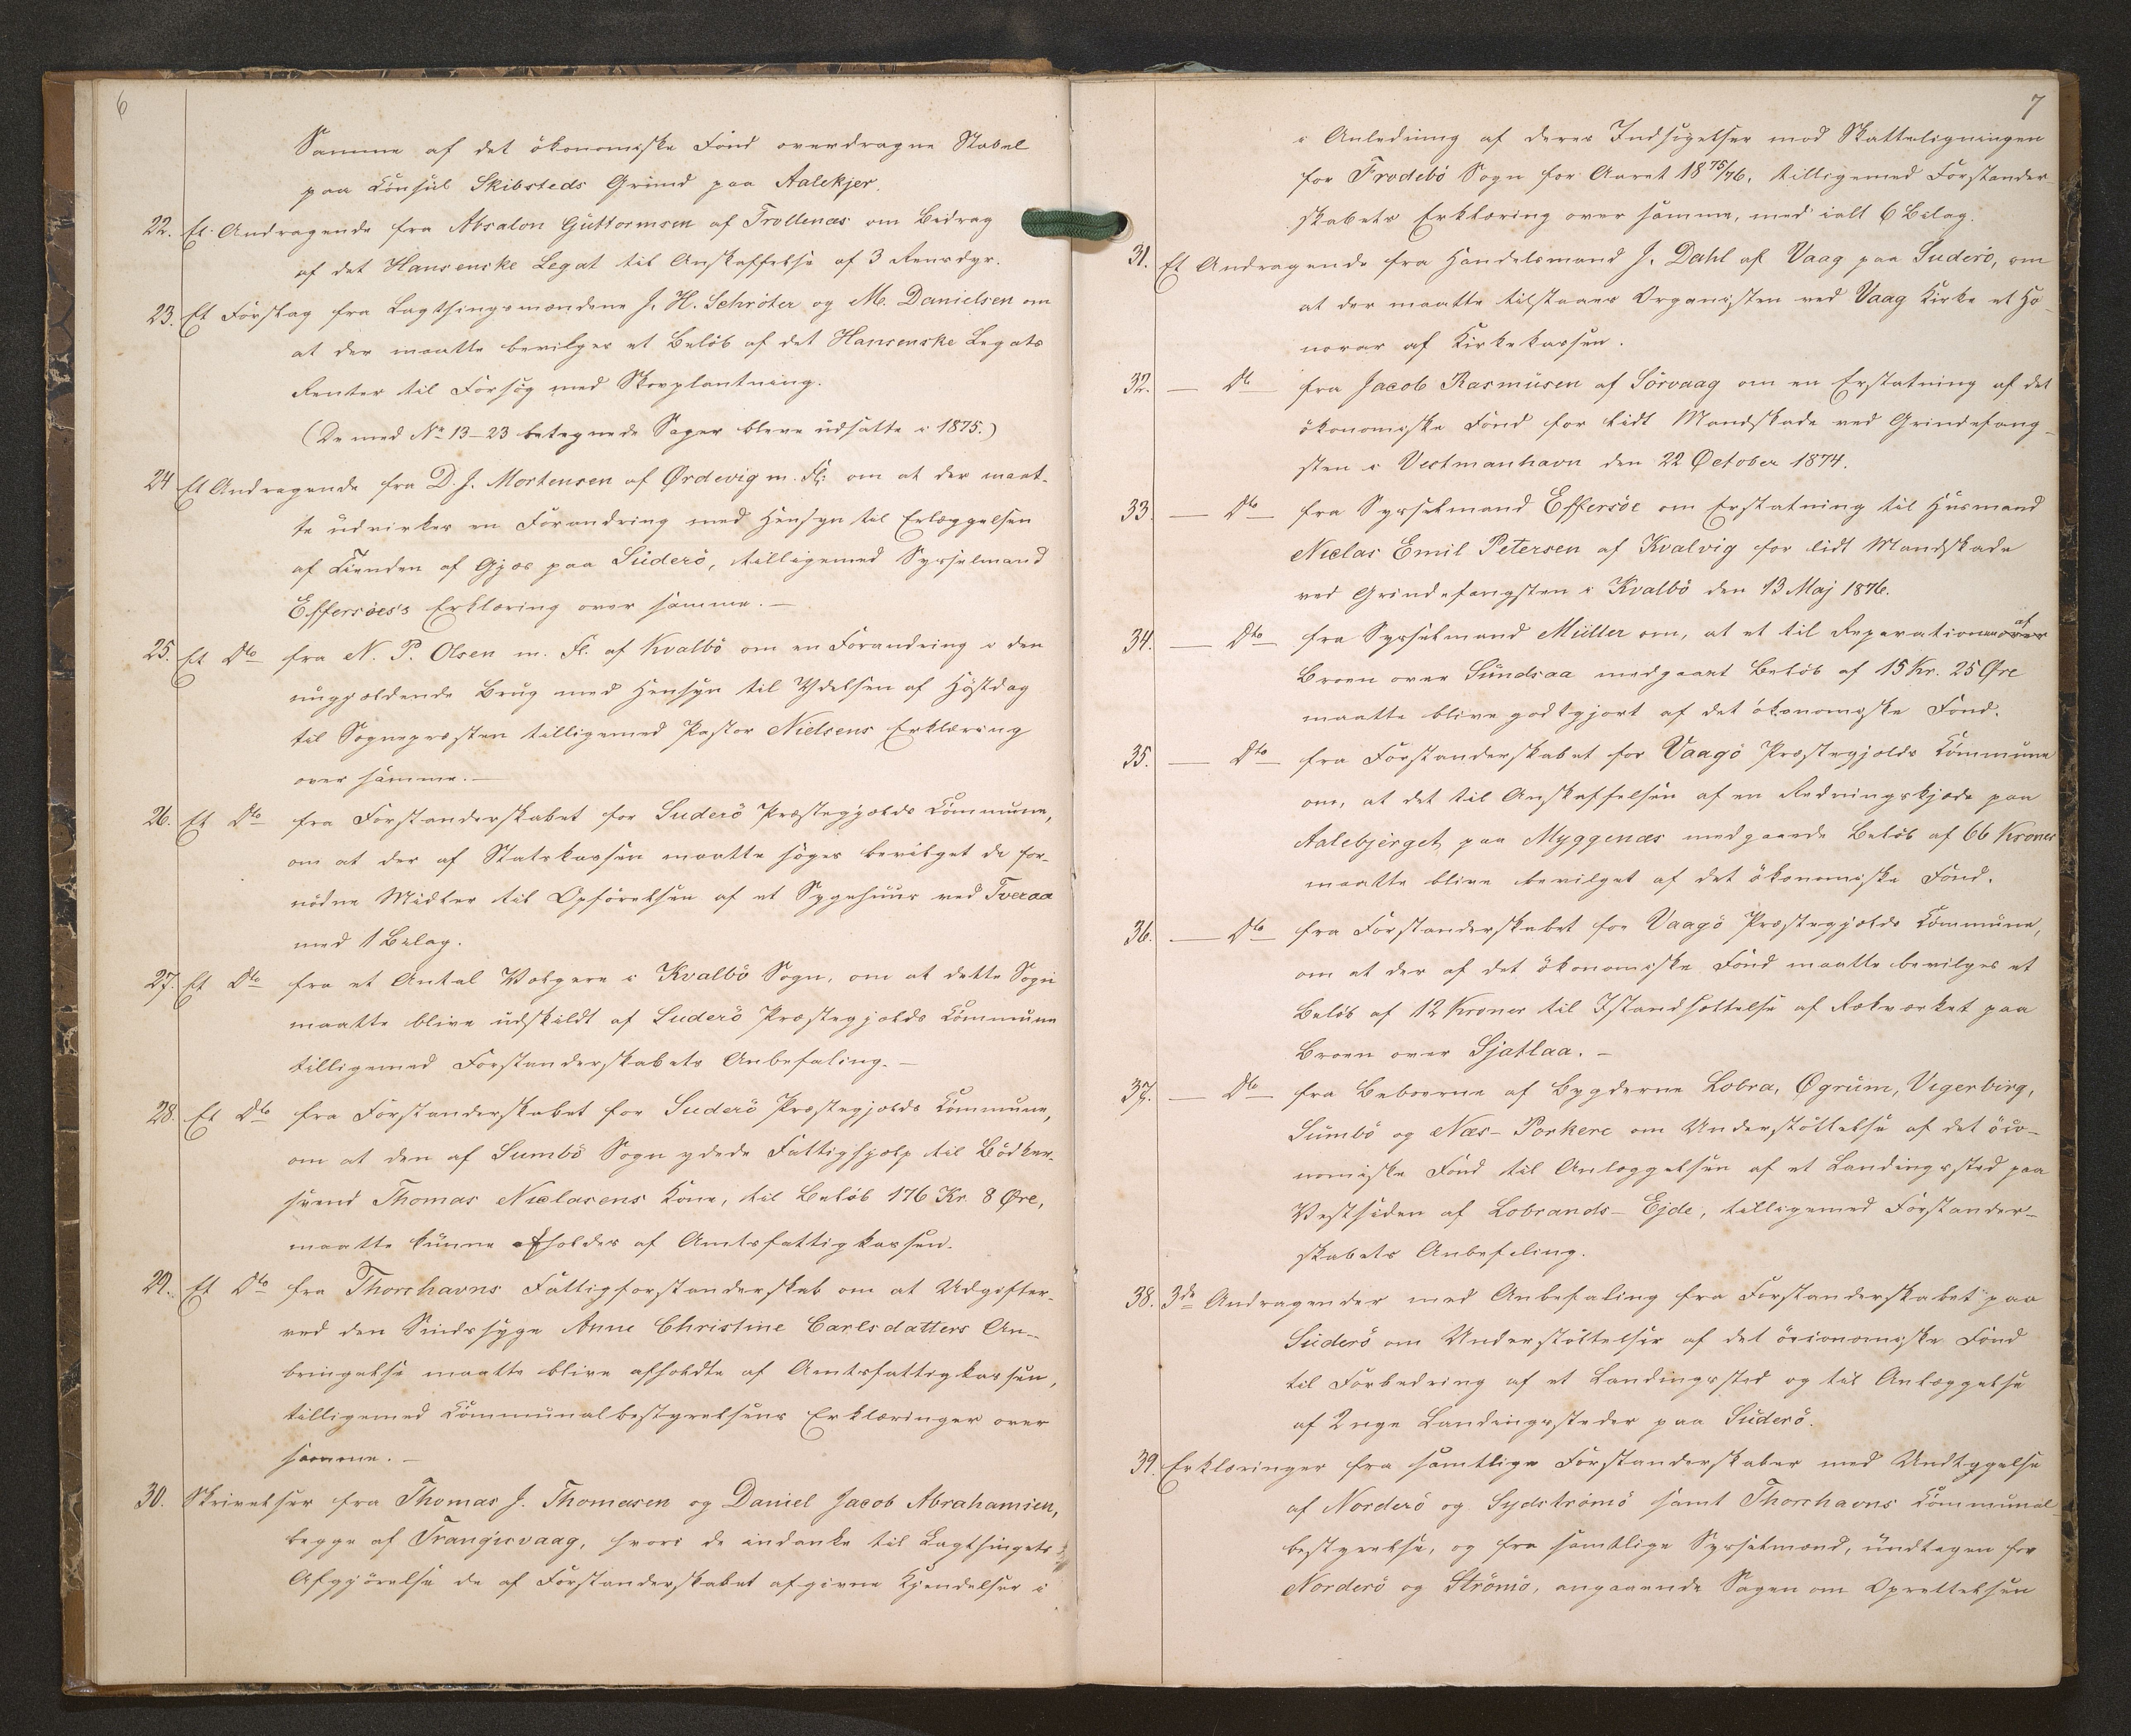 6
Samme af det ökonomiske Fond overdragne Stabel
paa Consul Skibsteds Grund paa Aalekjer.
22. Et Andragende fra Absalon Guttormsen af Trollenæs om Bidrag
af det Hansenske Legat til Anskaffelse af 3 Rensdyr.
23. Et Forslag fra Lagthingsmændene J. H. Schröter og M. Danielsen om
at der maatte bevilges et Beløb af det Hansenske Legats
Renter til Forsøg med Skovplantning.
(De med No 13-23 betegnede Sager bleve udsatte i 1875.)
24 Et Andragende fra D. J. Mortensen af Ørdevig m. Fl. om at der maat-
te udvirkes en Forandring med Hensyn til Erlæggelsen
af Tienden af Gjæs paa Suderö, tilligemed Sysselmand
Effersöes's Erklæring over samme. —
25. Et Dto fra N. P. Olsen m. Fl. af Kvalbö om en Forandring i den
nugjældende Brug med Hensyn til Ydelsen af Höstdag
til Sognepræsten tilligemed Pastor Nielsens Erklæring
over samme. —
26. Et Dto fra Forstanderskabet for Suderö Præstegjælds Commune,
om at der af Statskassen maatte søges bevilget de for-
nödne Midler til Opförelsen af et Sygehuus ved Tveraa
med 1 Bilag.
27. Et Dto fra et Antal Vælgere i Kvalbö Sogn, om at dette Sogn
maatte blive udskildt af Suderö Præstegjælds Commune
tilligemed Forstanderskabets Anbefaling. —
28. Et Dto fra Forstanderskabet for Suderö Præstegjælds Commune,
om at den af Sumbö Sogn ydede Fattighjælp til Bödker-
svend Thomas Niclasens Kone, til Beløb 176 Kr. 8 Øre,
maatte kunne afholdes af Amtsfattigkassen.
29. Et Dto fra Thorshavns Fattigforstanderskab om at Udgifter-
ved den Sindssyge Anne Christine Carlsdatters An-
bringelse maatte blive afholdte af Amtsfattigkassen,
tilligemed Communalbestyrelsens Erklæringer over
samme. —
30. Skrivelser fra Thomas J. Thomasen og Daniel Jacob Abrahamsen,
begge af Trangisvaag, hvori de indanke til Lagthingets
Afgjörelse de af Forstanderskabet afgivne Kjendelser i
7
i Anledning af deres Indsigelser mod Skatteligningen
for Frodebö Sogn for Aaret 1875/76, tilligemed Forstander-
skabets Erklæring over samme, med ialt 6 Bilag.
31. Et Andragende fra Handelsmand J. Dahl af Vaag paa Suderö, om
at der maatte tilstaaes Organisten ved Vaag Kirke et Ho-
norar af Kirkekassen.
32. — Dto — fra Jacob Rasmusen af Sörvaag om en Erstatning af det
ökonomiske Fond for lidt Mandskade ved Grindefang-
sten i Vestmanhavn den 22 October 1874.
33. — Dto — fra Sysselmand Effersöe om Erstatning til Husmand
Niclas Emil Petersen af Kvalvig for lidt Mandskade
ved Grindefangsten i Kvalbö den 13 Maj 1876.
34. — Dto — fra Sysselmand Müller om, at et til Reparationen over af
Broen over Sundsaa medgaaet Beløb af 15 Kr. 25 Øre
maatte blive godtgjort af det ökonomiske Fond.
35. — Dto — fra Forstanderskabet for Vaagö Præstegjælds Commune
om, at det til Anskaffelsen af en Redningskjæde paa
Aalebjerget paa Myggenæs medgaaede Beløb af 66 Kroner
maatte blive bevilget af det ökonomiske Fond.
36. — Dto — fra Forstanderskabet for Vaagö Præstegjælds Commune,
om at der af det ökonomiske Fond maatte bevilges et
Beløb af 12 Kroner til Istandsættelse af Rækværket paa
Broen over Sjatlaa. —
37. — Dto — fra Beboerne af Bygderne Lobra, Øgrum, Vigerbirg,
Sumbö og Næs-Porkere om Understöttelse af det öco-
nomiske Fond til Anlæggelsen af et Landingssted paa
Vestsiden af Lobrands-Ejde, tilligemed Forstander-
skabets Anbefaling.
38. 3de Andragender med Anbefaling fra Forstanderskabet paa
Suderö om Understöttelser af det öconomiske Fond
til Forbedring af et Landingssted og til Anlæggelse
af 2 nye Landingssteder paa Suderö.
39. Erklæringer fra samtlige Forstanderskaber med Undtagelse
af Norderö og Sydströmö samt Thorshavns Communal-
bestyrelse, og fra samtlige Sysselmænd, undtagen for
Norderö og Strömö, angaaende Sagen om Oprettelsen